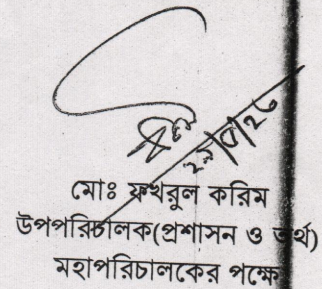 মোঃ ফখরুল করিম
উপপরিচালক(প্রশাসন ও অর্থ)
মহাপরিচালকের পক্ষে